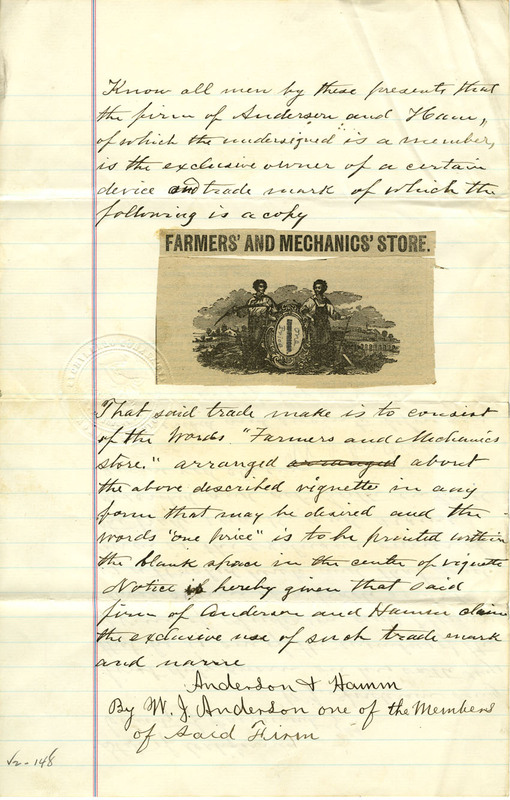 Know all men by these presents that
the firm of Anderson and Hamm,
of which the undersigned is a member,
is the exclusive owner of a certain
device and trade mark of which the
following is a copy
FARMERS' AND MECHANICS' STORE.
That said trade make is to consist
of the Words "Farmers and Mechanics
store." arranged arranged about
the above described vignette in any
form that may be desired and the
words "one price" is to be printed within
the blank space in the center of vignette
Notice is hereby given that said
firm of Anderson and Hamm claim
the exclusive use of such trade mark
and name
Anderson & Hamm
By W. J. Anderson one of the Members
of Said Firm
148